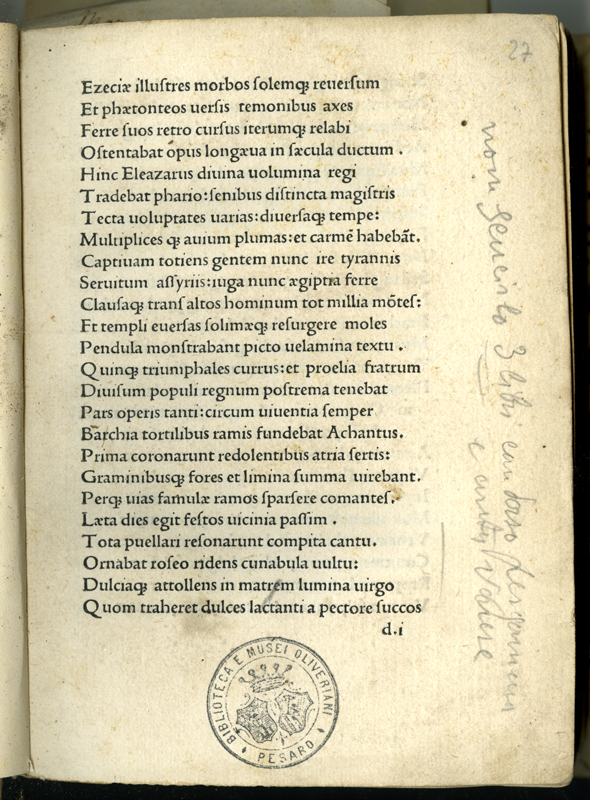 27
Ezeciæ illuſtres morbos ſolemqꝫ reuerſum
Et phætonteos uerſis temonibus axes
Ferre ſuos retro curſus iterumqꝫ relabi
Oſtentabat opus longæua in ſæcula ductum .
Hinc Eleazarus diuina uolumina regi
Tradebat phario:ſenibus diſtincta magiſtris
Tecta uoluptates uarias:diuerſaqꝫ tempe:
Multiplices qꝫ auium plumas:et carmē habebāt.
Captiuam totiens gentem nunc ire tyrannis
Seruitum aſſyriis:iuga nunc ægiptia ferre
Clauſaqꝫ tranſ altos hominum tot millia mōteſ:
Et templi euerſas ſolimæqꝫ reſurgere moles
Pendula monſtrabant picto uelamina textu .
Quinqꝫ triumphales currus:et proelia fratrum
Diuiſum populi regnum poſtrema tenebat
Pars operis tanti:circum uiuentia ſemper
Barchia tortilibus ramis fundebat Achantus.
Prima coronarunt redolentibus atria ſertis:
Graminibuſqꝫ fores et limina ſumma uirebant.
Perqꝫ uias famulæ ramos ſparſere comanteſ.
Læta dies egit feſtos uicinia paſſim .
Tota puellari reſonarunt compita cantu.
Ornabat roſeo ridens cunabula uultu:
Dulciaqꝫ attollens in matrem lumina uirgo
Quom traheret dulces lactanti a pectore ſuccos
d.i
BIBLIOTECA E MUSEI OLIVERIANI
PESARO
non 3 libri